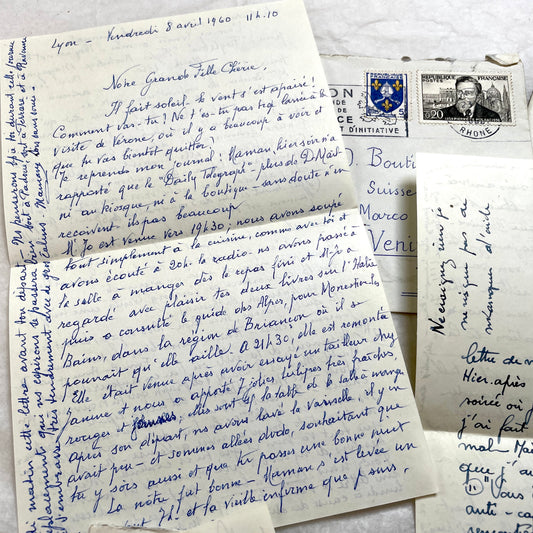 Lyon - Vendredi 8 avril 1960 11h.10
Notre Grande Fille Chérie,
Il fait soleil. Le vent s'est apaisé!
Comment vas-tu? Ne t'es-tu pas trop à la
visite de Vérone, où il y a beaucoup à voir et
que tu vas bientôt quitter?
Je reprends mon journal: Maman hier soir n'a
rapporté que le "Daily Telegraph" plus de D. Mail
ni au kiosque, ni à la boutique - sans doute n'en
recoivent-ils pas beaucoup
Mr Jo est venue vers 19h30; nous avons soupé
tout simplement à la cuisine, comme avec toi et
avons écouté à 20h. la radio. ns avons passé à
la salle à manger dès le repas fini et M-Jo a
regardé avec plaisir tes deux livres sur l'Italie
puis a consulté le guide des Alpes, pour Monestier-les
Bains, dans la région de Briançon où il se
pourrait qu'elle aille. A 21h30, elle est remontée
Elle était venue après avoir essayé un tailleur chez
Janine et nous a apporté 7 jolies tulipes très fraîches
rouges et jaunes; elles sont sur la table de la salle à manger
après son départ, ns avons lavé la vaisselle, il y en
avait peu - et sommes allées dodo, souhaitant que
tu y sois aussi et que tu passes une bonne nuit
La nôtre fut bonne - Maman s'est levée un
7h - et la vieille infirme que je suis,
matin cette lettre avant ton départ. Ns penserons à toi durant cette journée
déplacement que nous espérons se passera bien
t'embrasse très tendrement avec de gros câlins. Mamey
ON
DE
CE
ET D'INITIATIVE
REPUBLIQUE FRANÇAISE
POSTES
0,20
RHONE
D. Bouti
Suisse
Marco
Veni
Ne
pas de
manque d'
lettre de
Hier, après
soirée où
j'ai fait
mal - M
que j'au
11 "Vous
anti-ca
rencontr